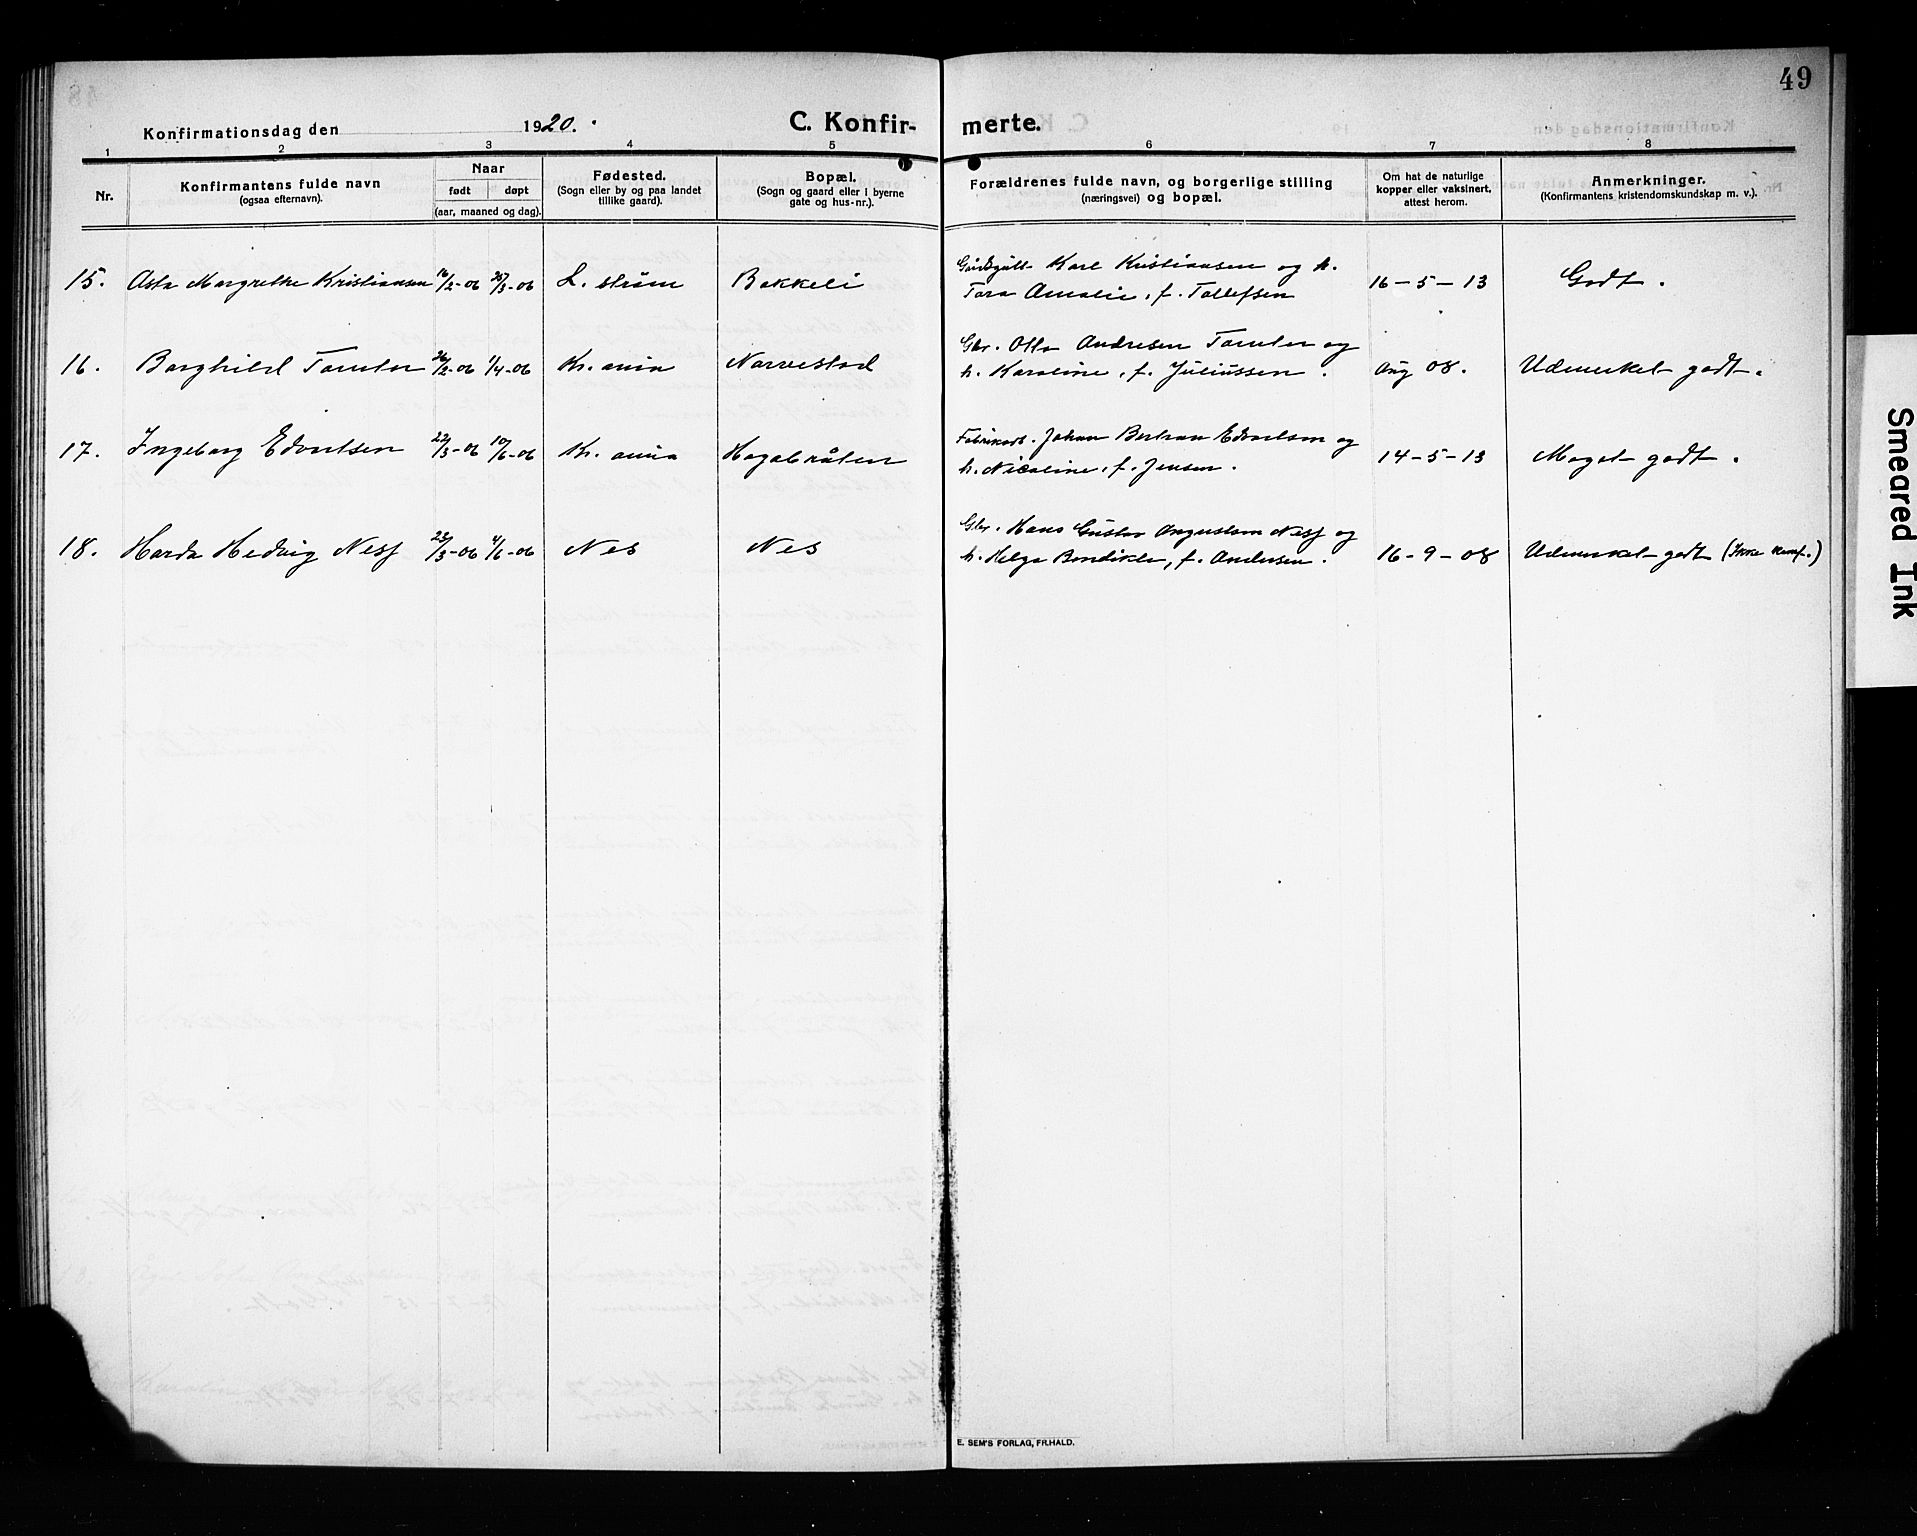 49
Konfirmationsdag den 1920.
C. Konfir- merte.
1 2 3 4 5 6 7 8
Nr.
Konfirmantens fulde navn
(ogsaa efternavn).
Naar
født døpt
(aar, maaned og dag).
Fødested.
(Sogn eller by og paa landet
tillike gaard).
Bopæl.
(Sogn og gaard eller i byerne
gate og hus-nr.).
Forældrenes fulde navn, og borgerlige stilling
(næringsvei) og bopæl.
Om hat de naturlige
kopper eller vaksinert,
attest herom.
Anmerkninger.
(Konfirmantens kristendomskundskap m. v.).
15. Asta Margrethe Kristiansen 16/2-06 25/3-06 L. strøm Bakkeli
Karl Kristiansen og h.
Tora Amalie, f. Tollefsen
16-5-13 Godt.
16. Borghild Tomter 26/2-06 1/4-06 Kr. ania Narvestad
Gbr. Otto Andresen Tomter og
h. Karoline, f. Juliussen.
Aug 08. Udmerket godt.
17. Ingeborg Edvartsen 22/3-06 10/6-06 Kr. ania Hagabråten
Fabrikarb. Johan Bertran Edvartsen og
h. Nicoline, f. Jensen.
14-5-13 Meget godt.
18. Harda Hedvig Ness 23/3-06 4/6-06 Nes Nes
Gbr. Hans Gustav Augustsen Ness og
h. Helga Bendikte, f. Andersen.
16-9-08 Udmerket godt (Ikke konf.)
E. SEM'S FORLAG, FR.HALD.
Smeared Ink